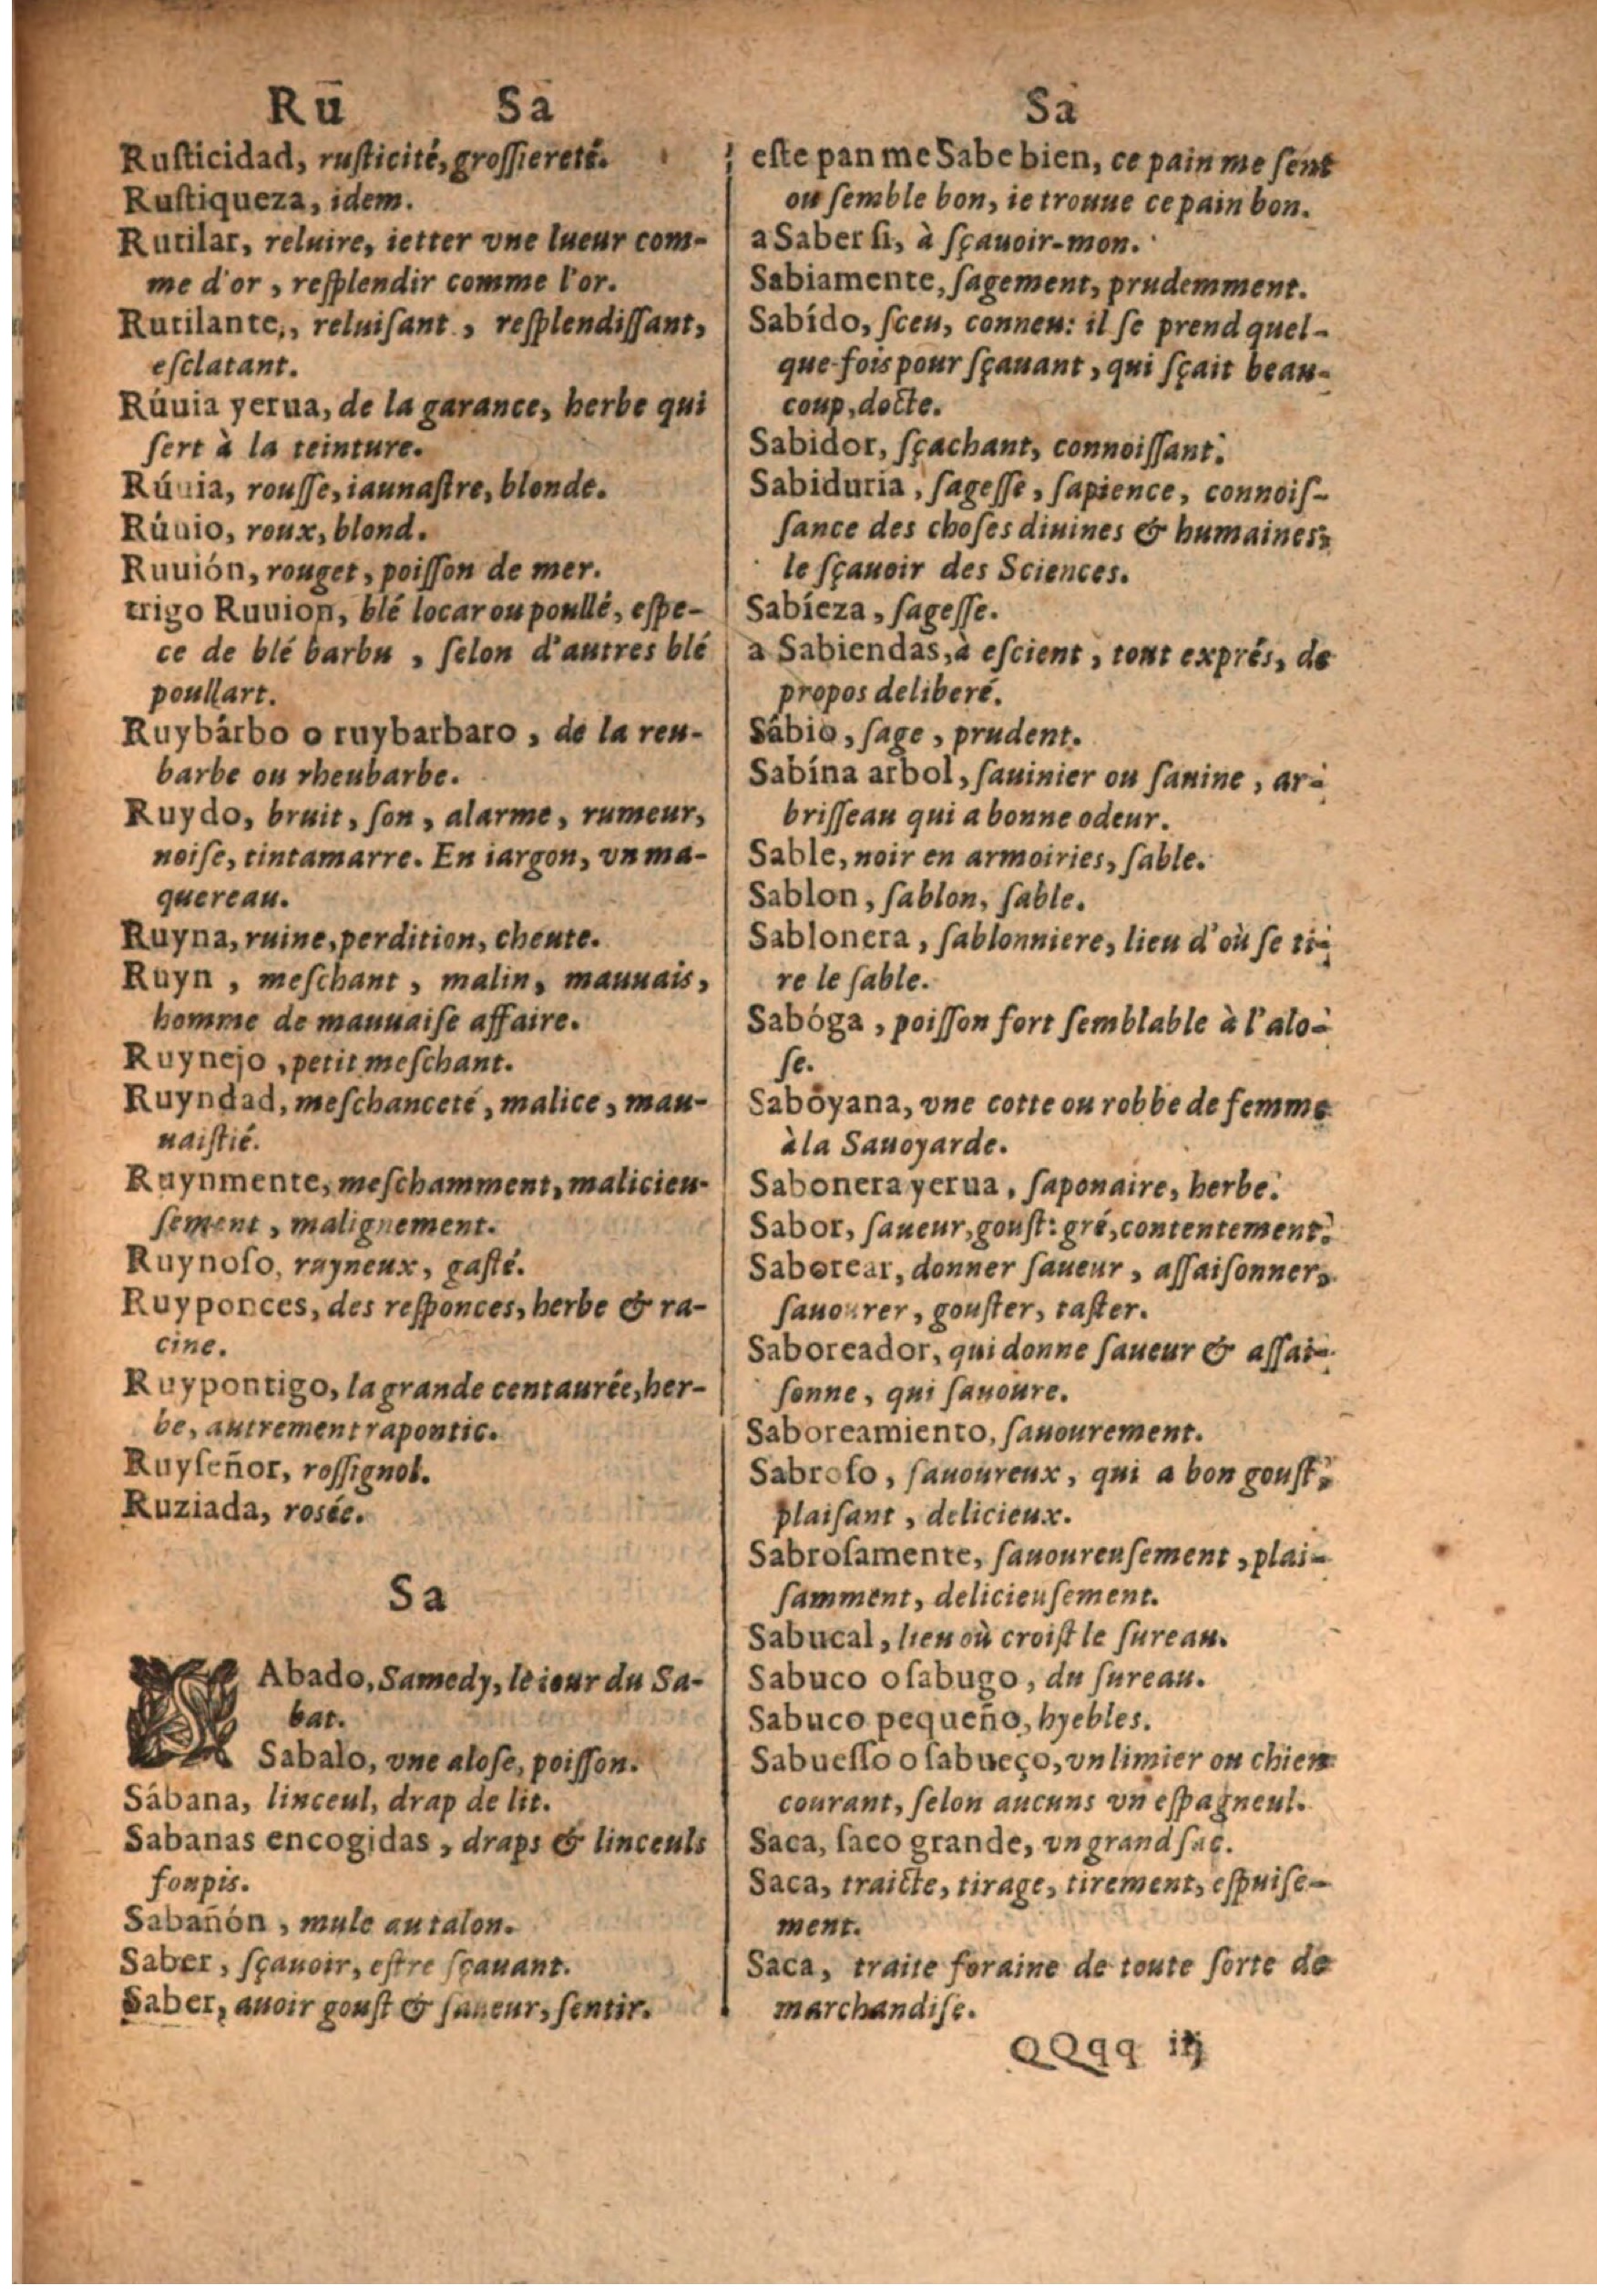 Ru Sa
Ruſticidad, ruſticité, groſſiereté.
Ruſtiqueza, idem.
Rutilar, reluire, ietter vne lueur com-
me d'or, reſplendir comme l'or.
Rutilante, reluiſant, reſplendiſſant,
eſclatant.
Rúuia yerua, de la garance, herbe qui
ſert à la teinture.
Rúuia, rouſſe, iaunaſtre, blonde.
Rúuio, roux, blond.
Ruuión, rouget, poiſſon de mer.
trigo Ruuion, blé locar ou poullé, eſpe-
ce de blé barbu, ſelon d'autres blé
poullart.
Ruybárbo o ruybarbaro, de la reu-
barbe ou rheubarbe.
Ruydo, bruit, ſon, alarme, rumeur,
noiſe, tintamarre. En iargon, vn ma-
quereau.
Ruyna, ruine, perdition, cheute.
Ruyn, meſchant, malin, mauuais,
homme de mauuaiſe affaire.
Ruynejo, petit meſchant.
Ruyndad, meſchanceté, malice, mau-
uaiſtié.
Ruynmente, meſchamment, malicieu-
ſement, malignement.
Ruynoſo, rayneux, gaſté.
Ruyponces, des reſponces, herbe & ra-
cine.
Ruypontigo, la grande centaurée, her-
be, autrement rapontic.
Ruyſeñor, roſſignol.
Ruziada, rosée.
Sa
SAbado, Samedy, le iour du Sa-
bat.
Sabalo, vne aloſe, poiſſon.
Sábana, linceul, drap de lit.
Sabanas encogidas, draps & linceuls
foupis.
Sabañón, mule au talon.
Saber, ſçauoir, eſtre ſçauant.
Saber, auoir gouſt & ſaueur, ſentir.
Sa
eſte pan me Sabe bien, ce pain me ſent
ou ſemble bon, ie trouue ce pain bon.
a Saber ſi, à ſçauoir-mon.
Sabiamente, ſagement, prudemment.
Sabído, ſceu, conneu: il ſe prend quel-
que-fois pour ſçauant, qui ſçait beau-
coup, docte.
Sabidor, ſçachant, connoiſſant.
Sabiduria, ſageſſe, ſapience, connoiſ-
ſance des choſes diuines & humaines,
le ſçauoir des Sciences.
Sabíeza, ſageſſe.
a Sabiendas, à eſcient, tout exprés, de
propos deliberé.
Sábio, ſage, prudent.
Sabína arbol, ſauinier ou ſauine, ar-
briſſeau qui a bonne odeur.
Sable, noir en armoiries, ſable.
Sablon, ſablon, ſable.
Sablonera, ſablonniere, lieu d'où ſe ti-
re le ſable.
Sabóga, poiſſon fort ſemblable à l'alo-
ſe.
Sabóyana, vne cotte ou robbe de femme
à la Sauoyarde.
Sabonera yerua, ſaponaire, herbe.
Sabor, ſaueur, gouſt: gré, contentement.
Saborear, donner ſaueur, aſſaiſonner,
ſauourer, gouſter, taſter.
Saboreador, qui donne ſaueur & aſſai-
ſonne, qui ſauoure.
Saboreamiento, ſauourement.
Sabroſo, ſauoureux, qui a bon gouſt,
plaiſant, delicieux.
Sabroſamente, ſauoureuſement, plai-
ſamment, delicieuſement.
Sabucal, lieu où croiſt le ſureau.
Sabuco o ſabugo, du ſureau.
Sabuco pequeño, hyebles.
Sabueſſo o ſabueço, vn limier ou chien
courant, ſelon aucuns vn eſpagneul.
Saca, ſaco grande, vn grand ſac.
Saca, traicte, tirage, tirement, eſpuiſe-
ment.
Saca, traite foraine de toute ſorte de
marchandiſe.
QQqq iij